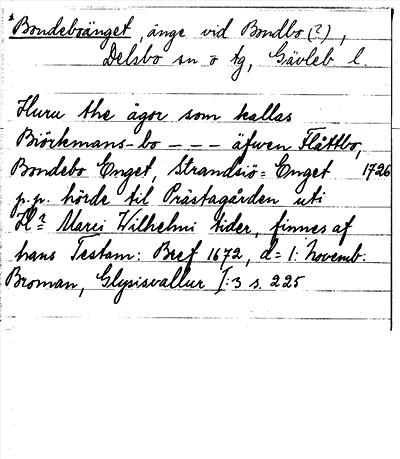 *Bondeboänget, änge vid Bondbo (?),
Delsbo sn o tg, Gävleb l.
Huru the ägor som kallas
Biörkmans-bo – – – äfwen Flåttbo,
Bondebo Enget, Strandsiö=Enget 1726
p.p. hörde til Prästagården uti
Hr Marci Wilhelmi tider, finnes af
hans Testam: Bref 1672, d= 1: Novemb:
Broman, Glysisvallur I:3 s. 225